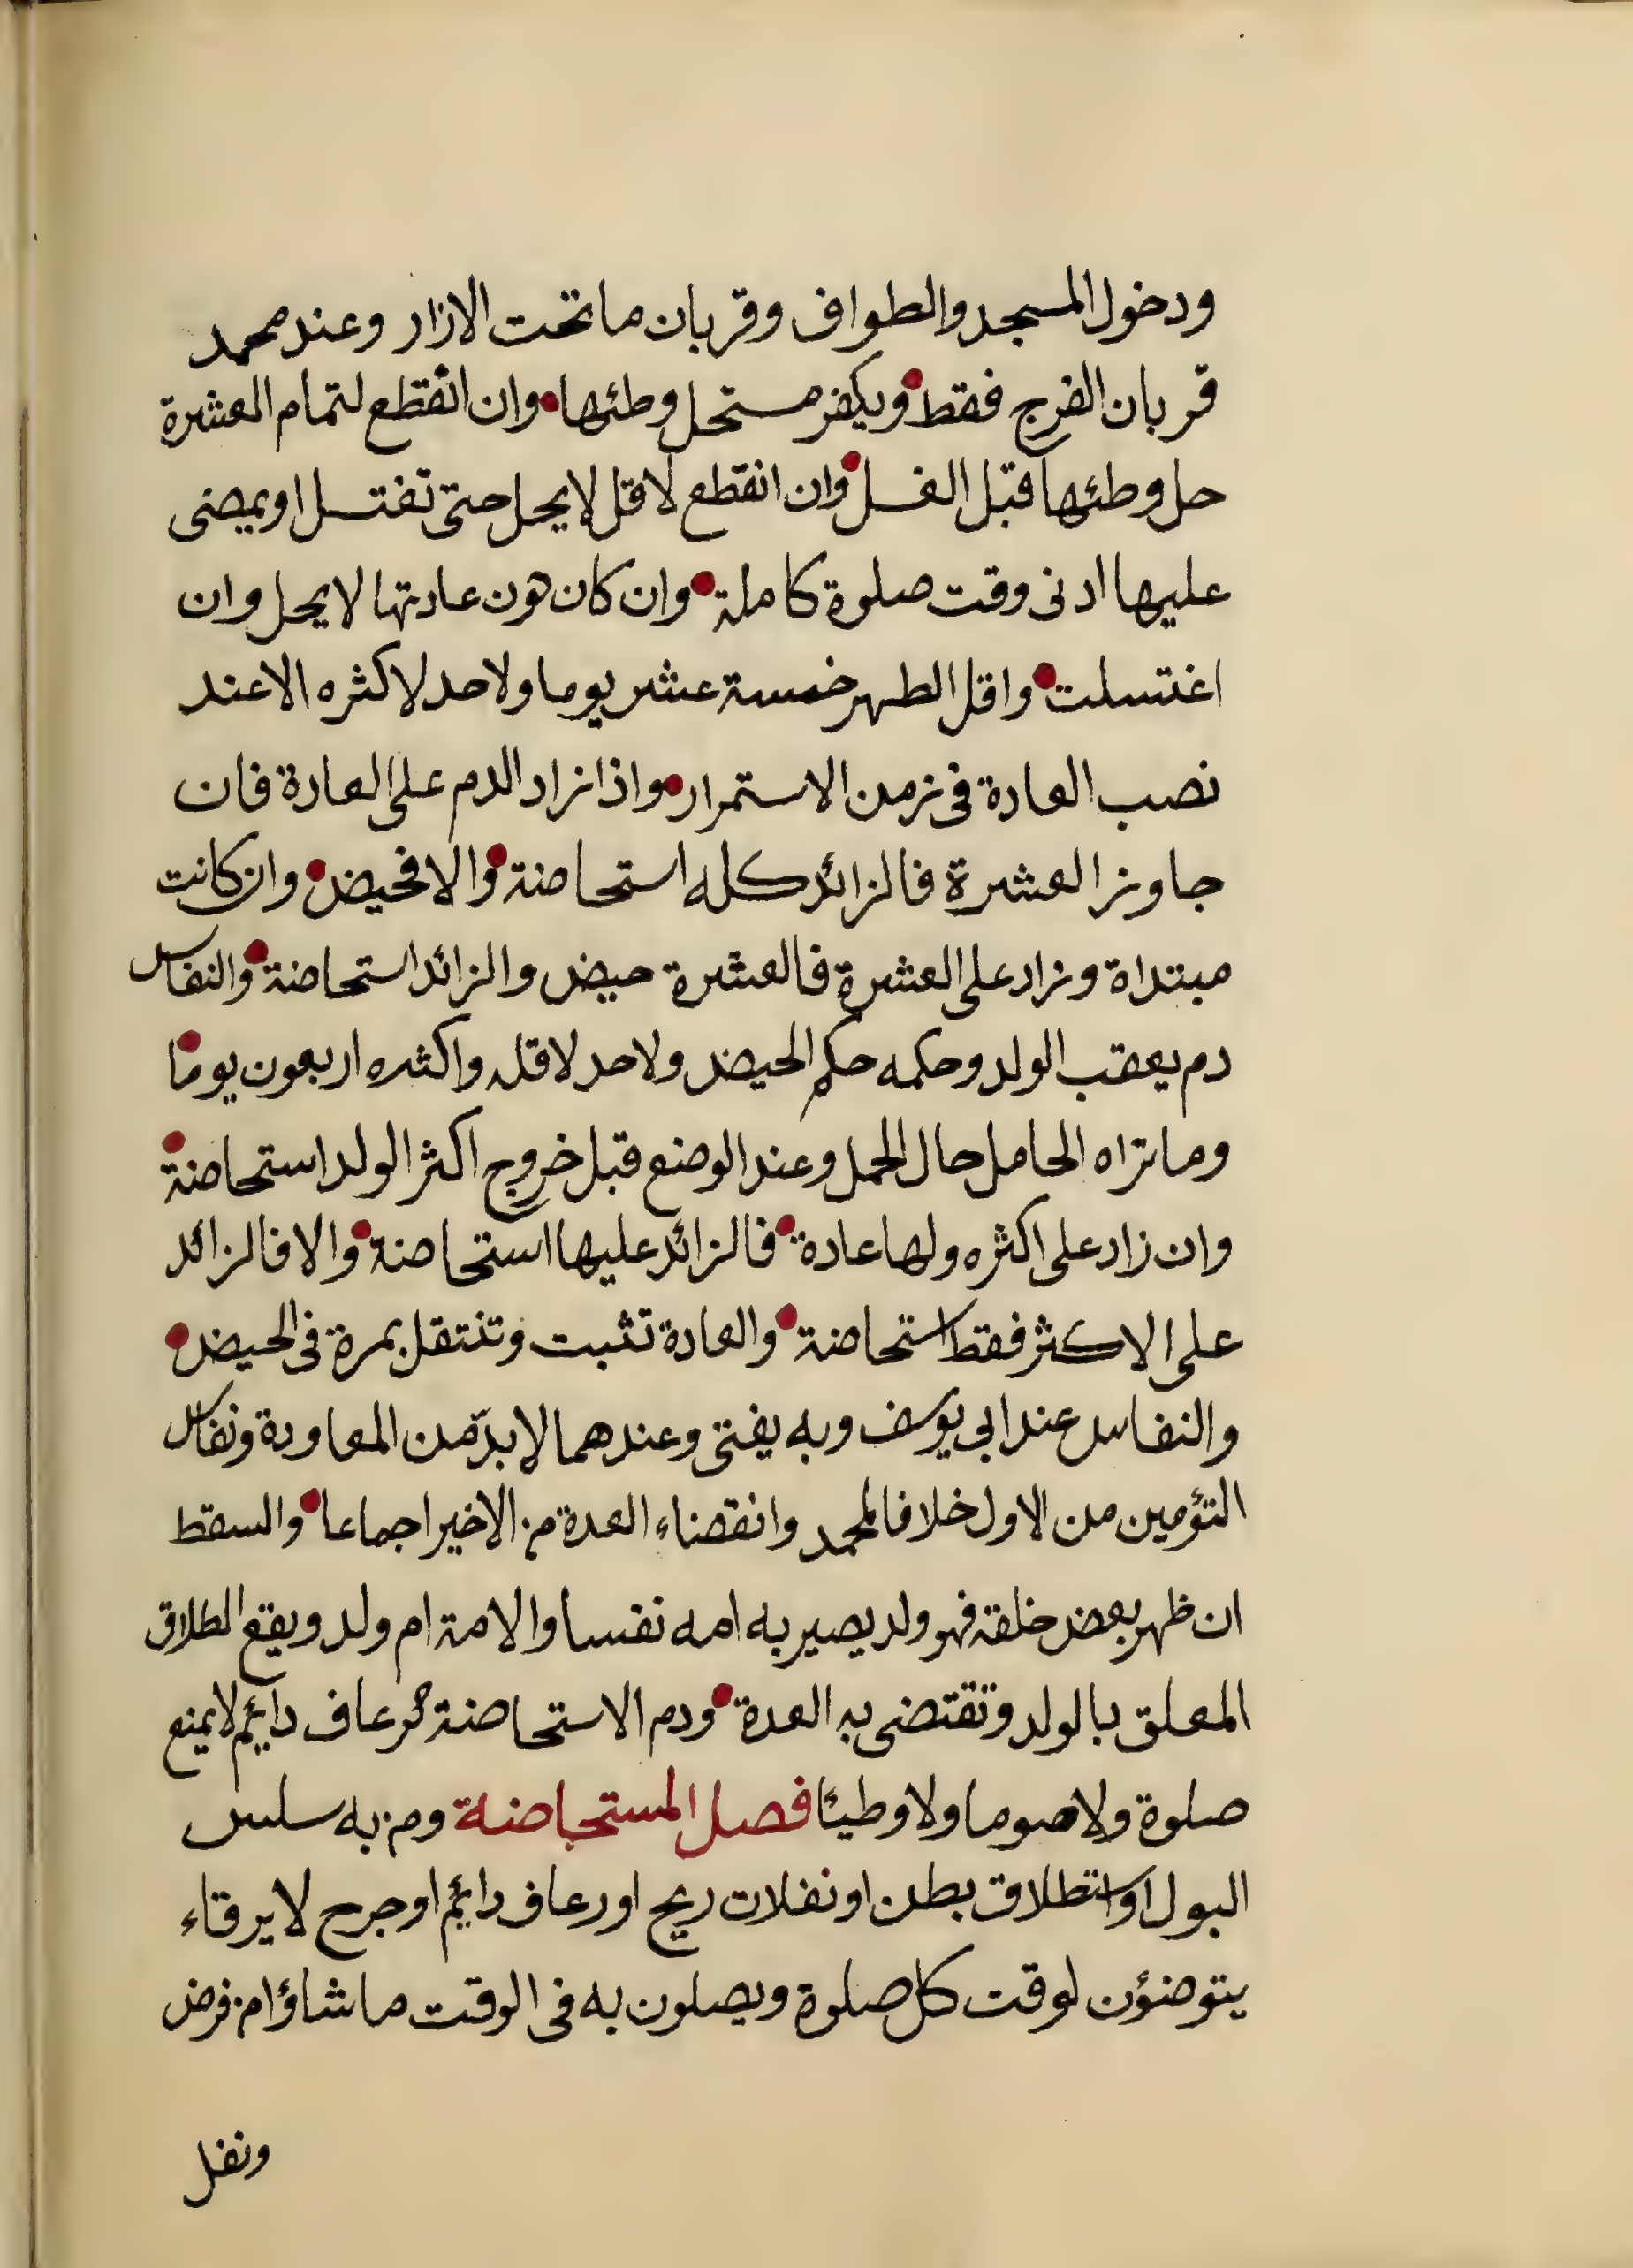 ودخول المسجد والطواف وقربان ما تحت الازار وعند محمد
قربان الفرج فقط ويكفر مستحل وطئها وان انقطع لتمام العشرة
حل وطئها قبل الغسل وان انقطع لاقل لا يحل حتى تغتسل او يمضى
عليها ادنى وقت صلوة كاملة وان كان دون عادتها لا يحل وان
اغتسلت واقل الطهر خمسة عشر يوما ولا حد لاكثره الا عند
نصب العادة فى زمن الاستمرار واذا زاد الدم على العادة فان
جاوز العشرة فالزائد كله استحاضة والا فحيض وان كانت
مبتداة وزاد على العشرة فالعشرة حيض والزائد استحاضة والنفاس
دم يعقب الولد وحكمه حكم الحيض ولا حد لاقله واكثره اربعون يوما
وما تراه الحامل حال الحمل وعند الوضع قبل خروج اكثر الولد استحاضة
وان زاد على اكثره ولها عادة فالزائد عليها استحاضة والا فالزائد
على الاكثر فقط استحاضة والعادة تثبت وتنتقل بمرة فى الحيض
والنفاس عند ابى يوسف وبه يفتى وعندهما لا بدّ من المعاودة ونفاس
التؤمين من الاول خلافا لمحمد وانقضاء العدة من الاخير اجماعا والسقط
ان ظهر بعض خلقة فهو ولد يصير به امه نفسا والامة ام ولد ويقع الطلاق
المعلق بالولد وتقتضى به العدة ودم الاستحاضة كرعاف دائم لا يمنع
صلوة ولا صوما ولا وطيئا فصل المستحاضة ومن به سلس
البول او استطلاق بطن او نفلات ريح او رعاف دائم او جرح لا يرقاء
يتوضؤن لوقت كل صلوة ويصلون به فى الوقت ما شاؤا من فرض
ونفل